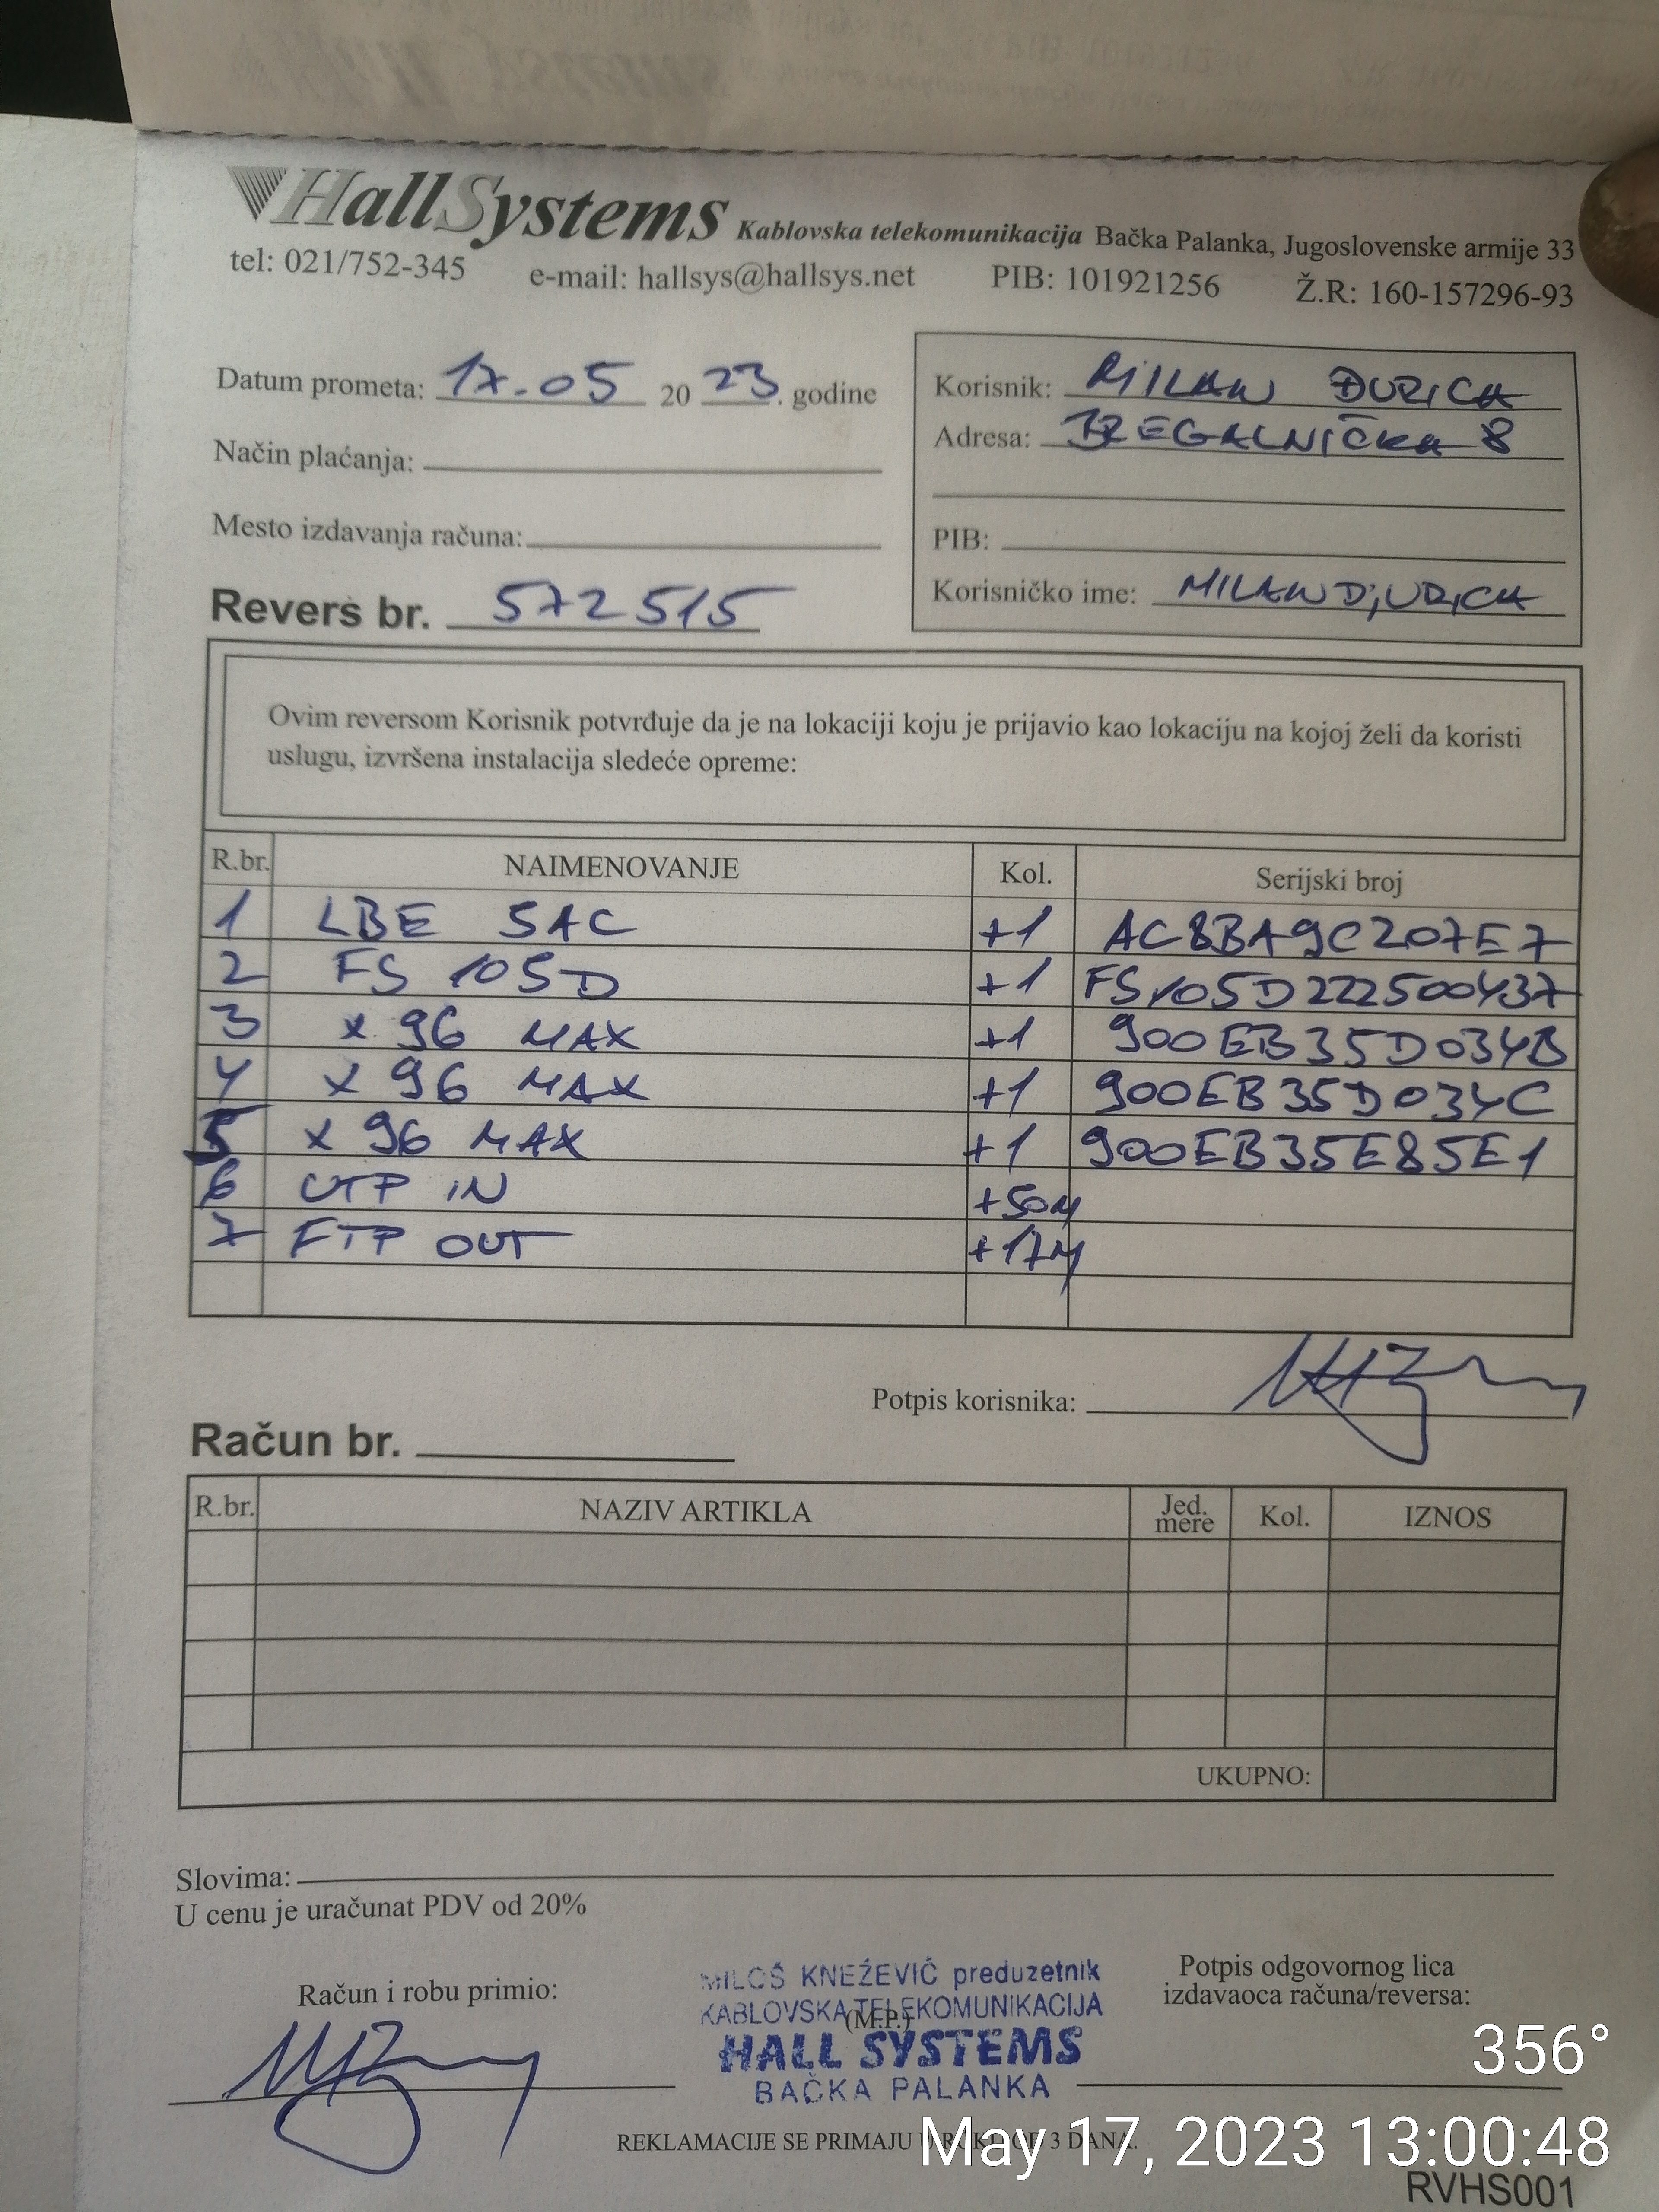 HallSystems Kablovska telekomunikacija Bačka Palanka, Jugoslovenske armije 33
tel: 021/752-345 e-mail: hallsys@hallsys.net PIB: 101921256 Ž.R: 160-157296-93
Datum prometa: 17.05 2023. godine
Način plaćanja:
Mesto izdavanja računa:
Revers br. 572515
Korisnik: MILAN ĐURICA
Adresa: BREGALNIČKA 8
PIB:
Korisničko ime: MILANDjURICA
Ovim reversom Korisnik potvrđuje da je na lokaciji koju je prijavio kao lokaciju na kojoj želi da koristi
uslugu, izvršena instalacija sledeće opreme:
R.br. NAIMENOVANJE Kol. Serijski broj
1 LBE 5AC +1 AC8BA9C207E7
2 FS 105D +1 FS105D222500437
3 x 96 MAX +1 900EB35D034B
4 x 96 MAX +1 900EB35D034C
5 x 96 MAX +1 900EB35E85E1
6 UTP IN +50M
7 FTP OUT +17M
Potpis korisnika:
Račun br.
R.br. NAZIV ARTIKLA Jed. mere Kol. IZNOS
UKUPNO:
Slovima:
U cenu je uračunat PDV od 20%
Račun i robu primio:
MILOŠ KNEŽEVIĆ preduzetnik
KABLOVSKA TELEKOMUNIKACIJA
(M.P.)
HALL SYSTEMS
BAČKA PALANKA
Potpis odgovornog lica
izdavaoca računa/reversa:
356°
REKLAMACIJE SE PRIMAJU U ROKU OD 3 DANA.
May 17, 2023 13:00:48
RVHS001